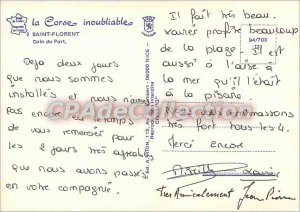 la Corse inoubliable
SAINT-FLORENT
Coin du Port.
Deja deux jours
que nous sommes
installés et nous n'avons
pas encore eu le temps
de vous remercier pour
les 2 jours très agréables
que nous avons passés
en votre compagnie.
Il fait très beau.
Xavier profite beaucoup
de la plage
94/703
est
aussi à l'aise à
la mer qu'il l'était
à la piscine.
très fort tous les 4.
Merci encore
Xavier
Très Amicalement Jean Pierre
CPADECOLLECTION